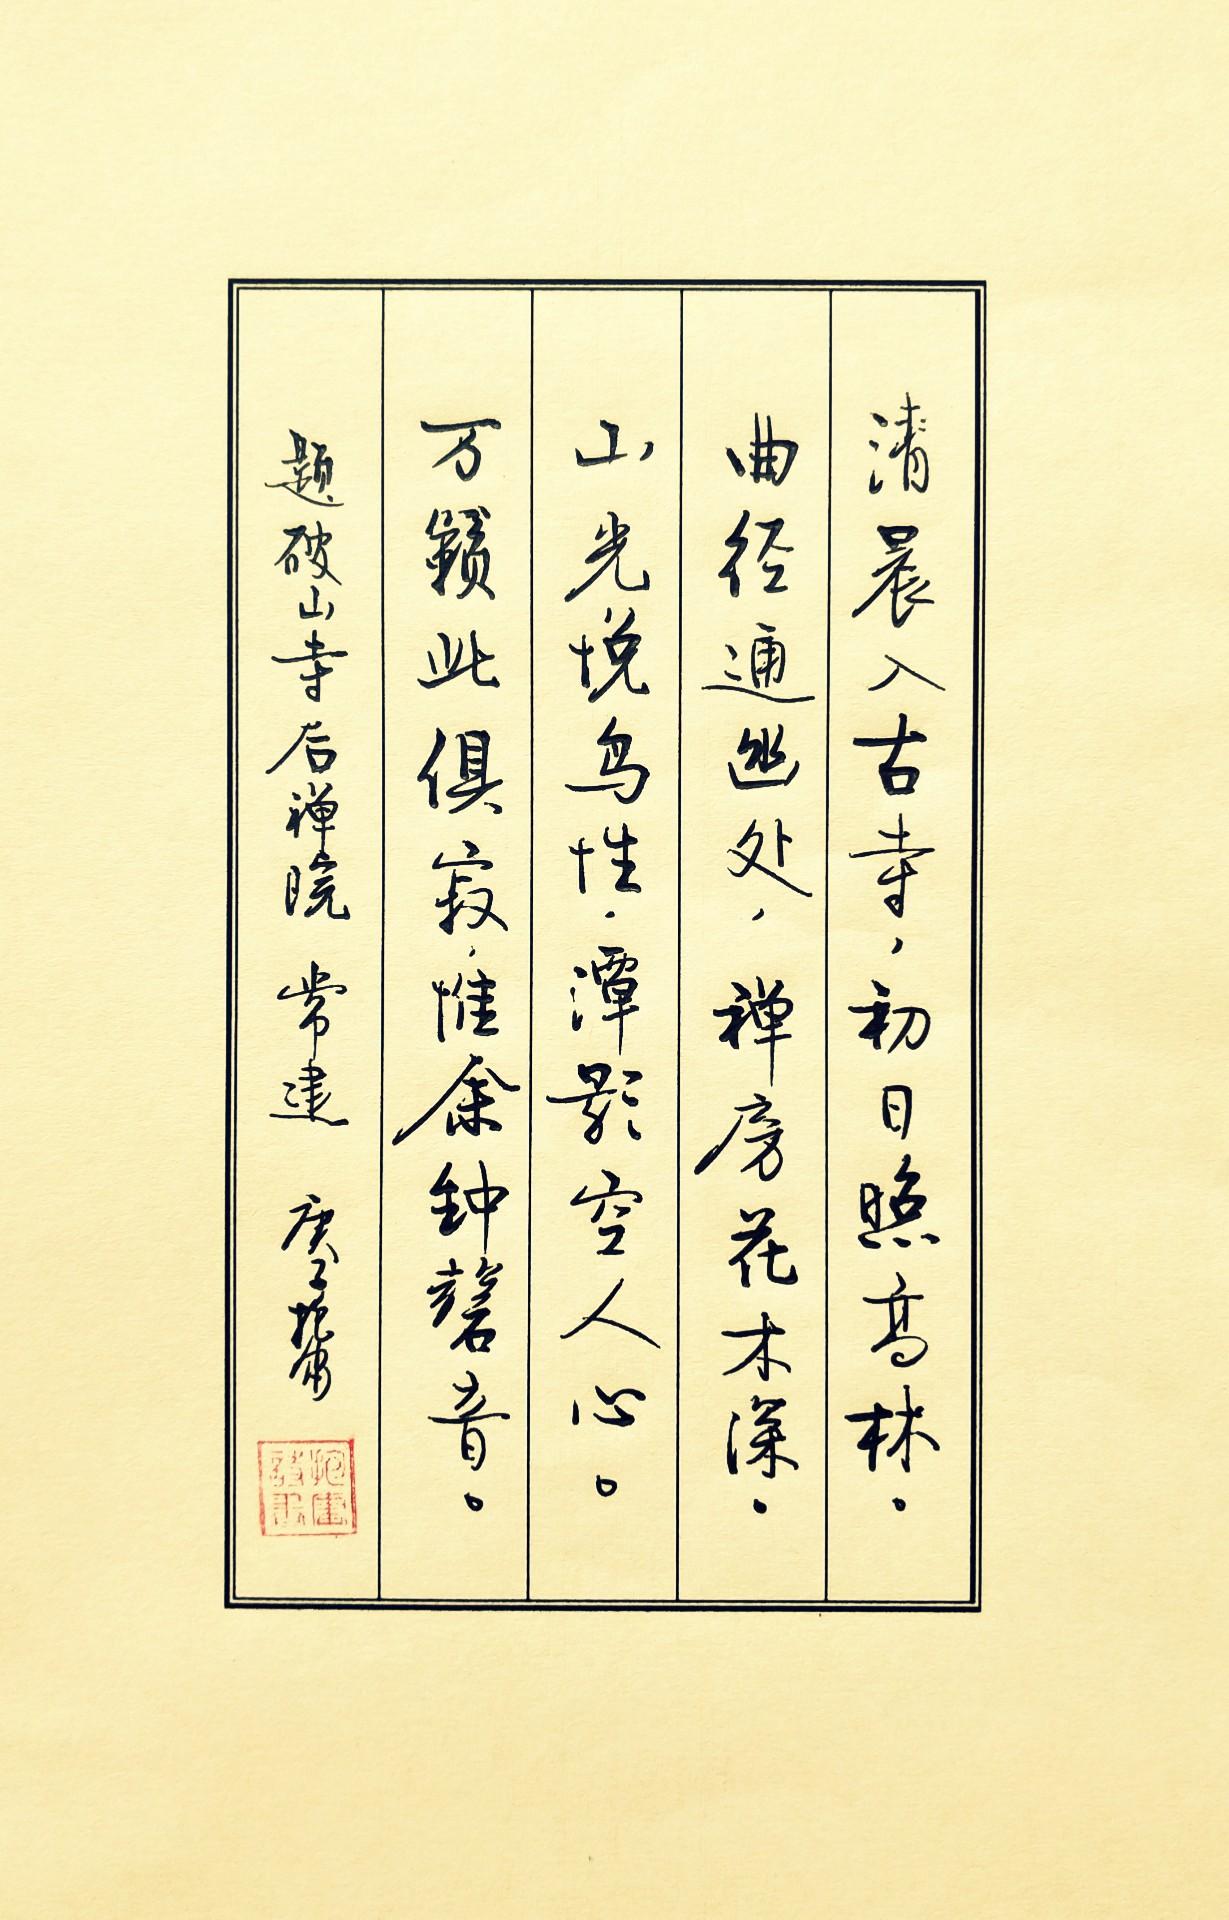 清晨入古寺，初日照高林。
曲径通幽处，禅房花木深。
山光悦鸟性，潭影空人心。
万籁此俱寂，惟余钟磬音。
题破山寺后禅院 常建 庚子抱庸